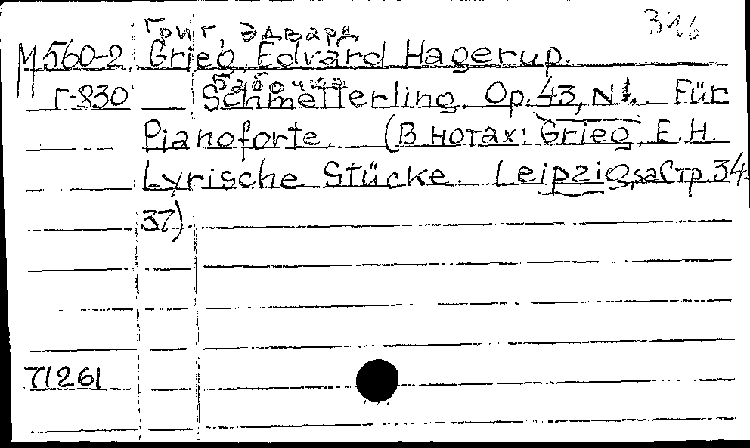 316
Григ, Эдвард
М560-2 Grieg, Edvard Hagerup.
Бабочка
Г-830 Schmetterling. Op. 43, N1. Für
Pianoforte. (В нотах: Grieg, E. H.
Lyrische Stücke. Leipzig, sa Стр. 34-
37).
71261